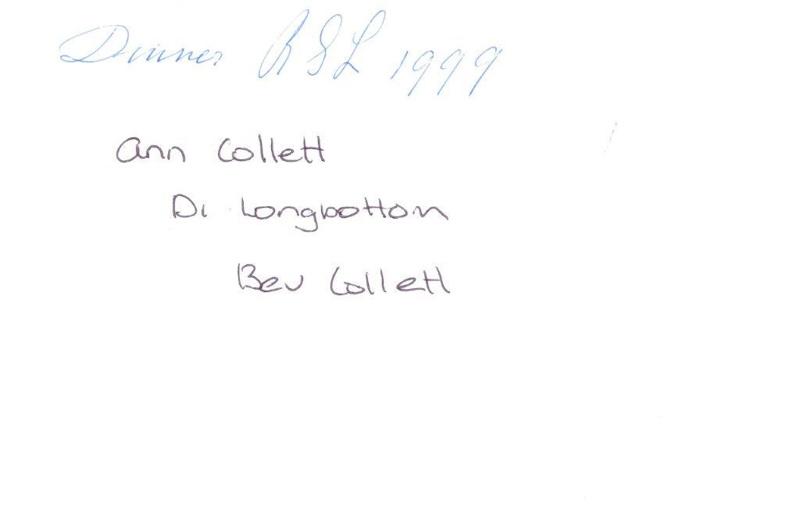 Dinner RSL 1999
Ann Collett
Di Longbottom
Bev Collett